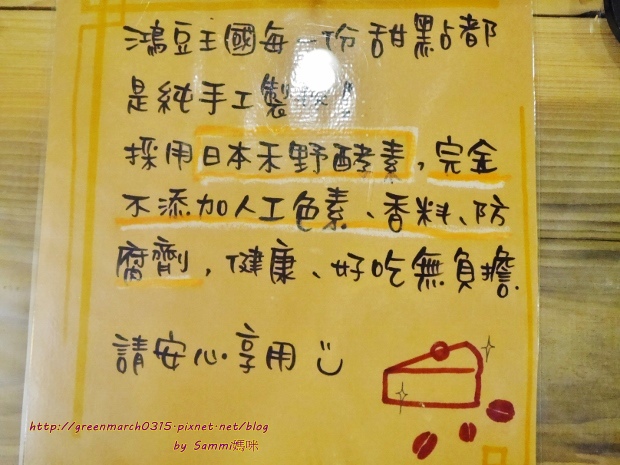 鴻豆王國每一份甜點都
是純手工製作!
採用日本禾野酵素,完全
不添加人工色素、香料、防
腐劑,健康、好吃無負擔.
請安心享用
http://greenmarch0315.pixnet.net/blog
by Sammi媽咪